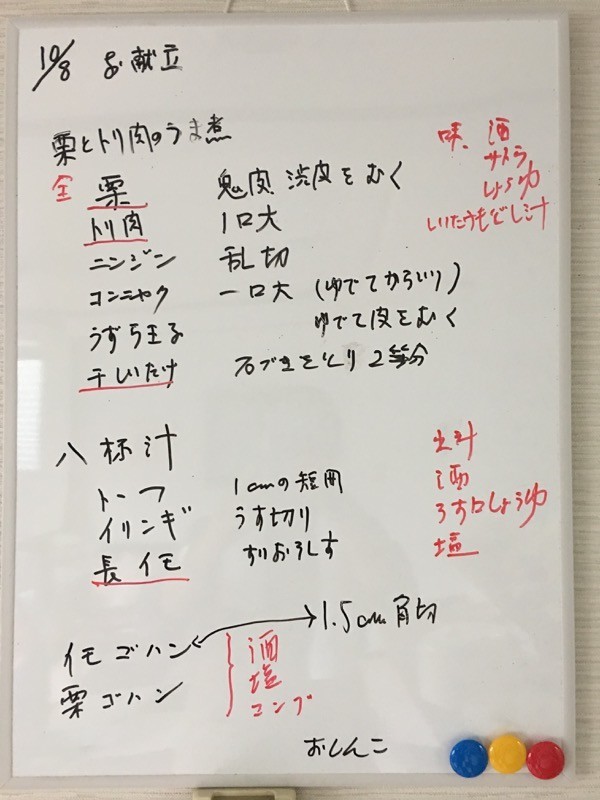 10/8 お献立
栗とトリ肉のうま煮
味、酒
サトウ
しょうゆ
しいたけもどし汁
全 栗 鬼皮、渋皮をむく
トリ肉 1口大
ニンジン 乱切
コンニャク 一口大 (ゆでてからいり)
うずら玉子 ゆでて皮をむく
干しいたけ 石づきをとり2等分
八杯汁
出汁
酒
うす口しょうゆ
塩
トーフ 1cmの短冊
イリンギ うす切り
長イモ すりおろしす
イモゴハン 1.5cm角切
栗ゴハン
酒
塩
コンブ
おしんこ